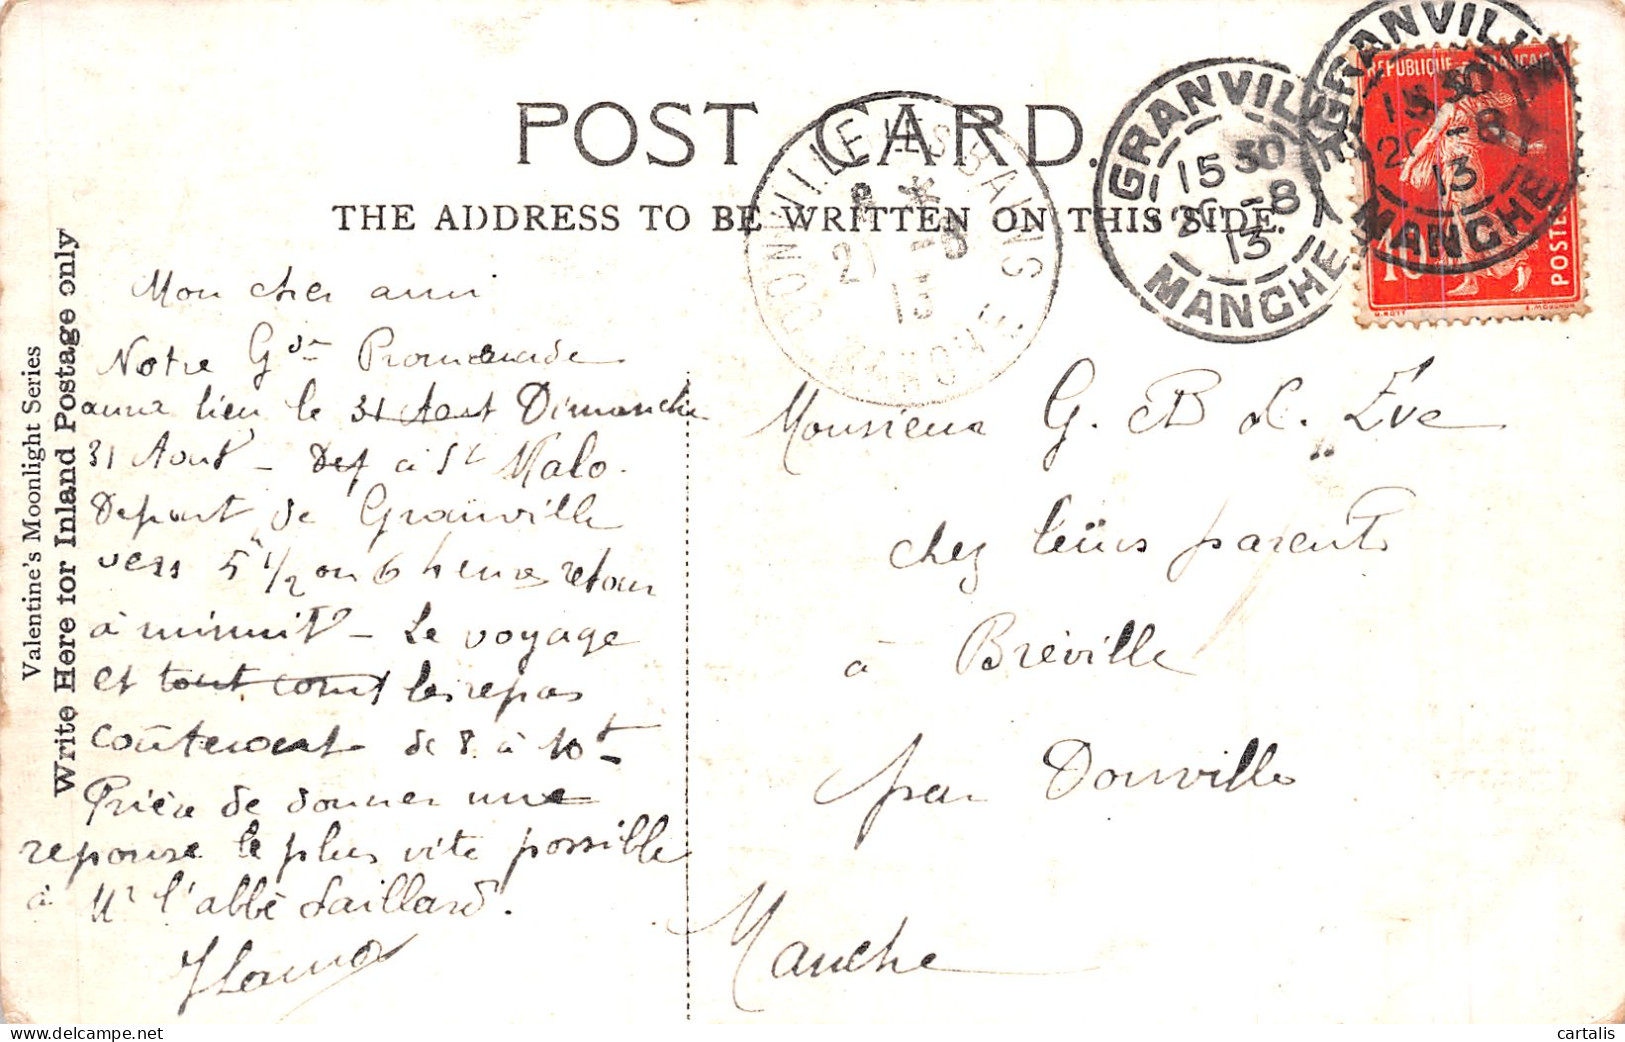 POST CARD.
THE ADDRESS TO BE WRITTEN ON THIS SIDE.
Valentine's Moonlight Series
Write Here for Inland Postage only
GRANVILLE
15 30
20 -8
13
MANCHE
GRANVILLE
15 30
20 -8
13
MANCHE
REPUBLIQUE FRANÇAISE
10
POSTES
DONVILLE LES BAINS
13
MANCHE
Mon cher ami
Notre Gde Promenade
aura lieu le 31 Aout Dimanche
31 Aout - Dep à St Malo.
Depart de Granville
vers 5h 1/2 ou 6 heures retour
à minuit - Le voyage
et tout cout les repas
de 8 à 10f -
Prière de donner une
reponse le plus vite possible
à Mr l'abbé Saillard.
Monsieur G. B. L. Eve
chez leurs parents
à Breville
par Donville
Manche
cartalis